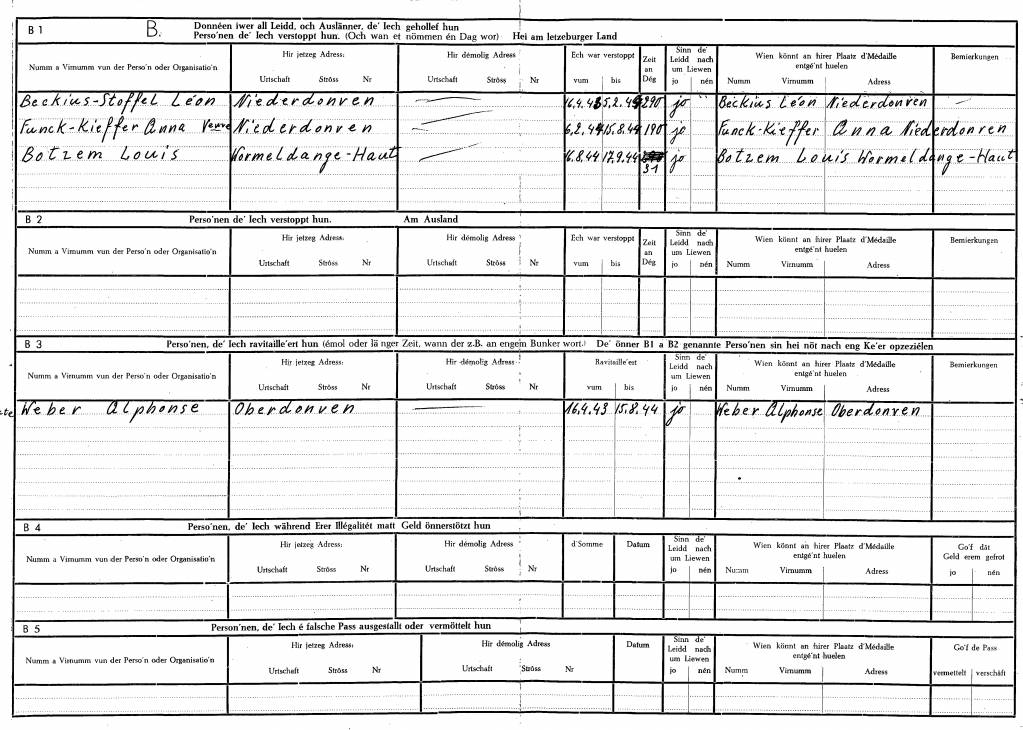 B 1 B. Donnéen iwer all Leidd, och Auslänner, de' Iech gehollef hun
Perso'nen de' Iech verstoppt hun. (Och wan et nömmen én Dag wor) Hei am letzeburger Land
Numm a Virnumm vun der Perso'n oder Organisatio'n Hir jetzeg Adress: Hir démolig Adress Ech war verstoppt Zeit an Dég Sinn de' Leidd nach um Liewen Wien könnt an hirer Plaatz d'Médaille entgé'nt huelen Bemierkungen
Urtschaft Ströss Nr Urtschaft Ströss Nr vum bis jo nén Numm Virnumm Adress
Beckius-Stoffel Léon Niederdonven 16.4.43 5.2.44 290 jo Beckius Léon Niederdonven
Funck-Kieffer Anna Veuve Niederdonven 6.2.44 15.8.44 190 jo Funck-Kieffer Anna Niederdonven
Botzem Louis Wormeldange-Haut 16.8.44 17.9.44 jo Botzem Louis Wormeldange-Haut
31
B 2 Perso'nen de' Iech verstoppt hun. Am Ausland
Numm a Virnumm vun der Perso'n oder Organisatio'n Hir jetzeg Adress: Hir démolig Adress Ech war verstoppt Zeit an Dég Sinn de' Leidd nach um Liewen Wien könnt an hirer Plaatz d'Médaille entgé'nt huelen Bemierkungen
Urtschaft Ströss Nr Urtschaft Ströss Nr vum bis jo nén Numm Virnumm Adress
B 3 Perso'nen, de' Iech ravitaille'ert hun (émol oder lä nger Zeit, wann der z.B. an engem Bunker wort.) De' önner B1 a B2 genannte Perso'nen sin hei nöt nach eng Ke'er opzeziélen
Numm a Virnumm vun der Perso'n oder Organisatio'n Hir jetzeg Adress: Hir démolig Adress Ravitaille'est Sinn de' Leidd nach um Liewen Wien könnt an hirer Plaatz d'Médaille entgé'nt huelen Bemierkungen
Urtschaft Ströss Nr Urtschaft Ströss Nr vum bis jo nén Numm Virnumm Adress
Weber Alphonse Oberdonven 16.4.43 15.8.44 jo Weber Alphonse Oberdonven
B 4 Perso'nen, de' Iech während Erer Illégalitét matt Geld önnerstötzt hun
Numm a Virnumm vun der Perso'n oder Organisatio'n Hir jetzeg Adress: Hir démolig Adress d'Somme Datum Sinn de' Leidd nach um Liewen Wien könnt an hirer Plaatz d'Médaille entgé'nt huelen Go'f dát Geld erem gefrot
Urtschaft Ströss Nr Urtschaft Ströss Nr jo nén Numm Virnumm Adress jo nén
B 5 Person'nen, de' Iech é falsche Pass ausgestallt oder vermöttelt hun
Numm a Virnumm vun der Perso'n oder Organisatio'n Hir jetzeg Adress: Hir démolig Adress Datum Sinn de' Leidd nach um Liewen Wien könnt an hirer Plaatz d'Médaille entgé'nt huelen Go'f de Pass
Urtschaft Ströss Nr Urtschaft Ströss Nr jo nén Numm Virnumm Adress vermettelt verschäft